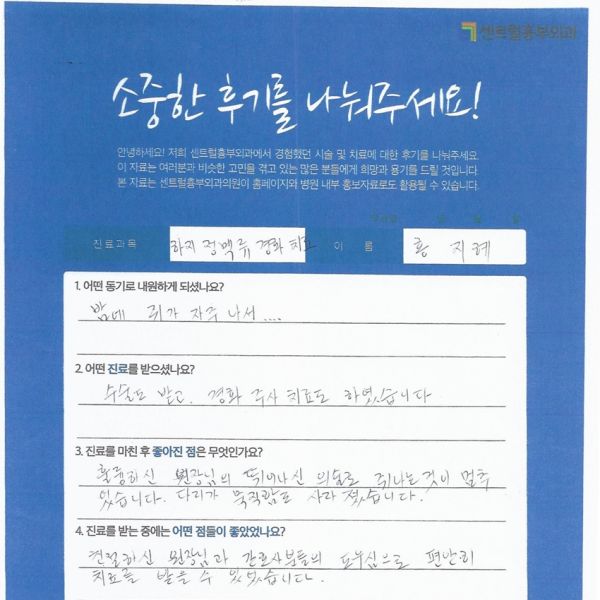 센트럴흉부외과
소중한 후기를 나눠주세요!
안녕하세요! 저희 센트럴흉부외과에서 경험했던 시술 및 치료에 대한 후기를 나눠주세요.
이 자료는 여러분과 비슷한 고민을 겪고 있는 많은 분들에게 희망과 용기를 드릴 것입니다.
본 자료는 센트럴흉부외과의원이 홈페이지와 병원 내부 홍보자료로도 활용될 수 있습니다.
진료과목 하지 정맥류 경화 치료 이 름 홍 지혜
1. 어떤 동기로 내원하게 되셨나요?
밤에 쥐가 자주 나서....
2. 어떤 진료를 받으셨나요?
수술도 받고, 경화 주사 치료도 하였습니다
3. 진료를 마친 후 좋아진 점은 무엇인가요?
훌륭하신 원장님의 뛰어나신 의술로 쥐나는것이 멈추
었습니다. 다리가 묵직함도 사라 졌습니다.
4. 진료를 받는 중에는 어떤 점들이 좋았었나요?
친절하신 원장님과 간호사분들의 도우심으로 편안히
치료를 받을 수 있었습니다.